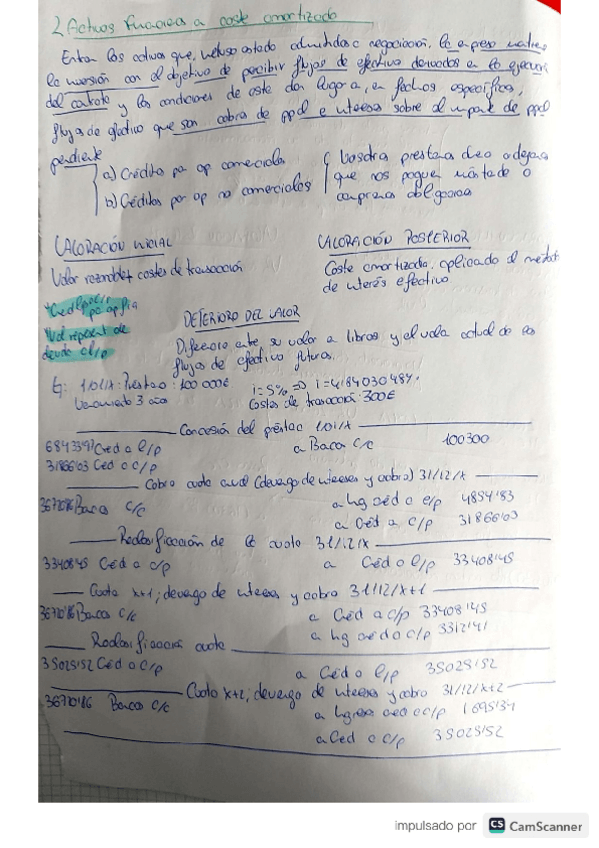 2 Activos financieros a coste amortizado
Entran los activos que, incluso estado admitidos a negociación, la empresa mantiene
la inversión con el objetivo de percibir flujos de efectivo derivados en la ejecución
del contrato y las condiciones de este dan lugar a, en fechas específicas,
flujos de efectivo que son cobros de ppal e intereses sobre el importe de ppal
pendiente
a) Créditos por op comerciales
b) Créditos por op no comerciales
que nos paguen
VALORACIÓN INICIAL
Valor razonable + costes de transacción
VALORACIÓN POSTERIOR
Coste amortizado, aplicado el método
de interés efectivo
Val represent de
deuda a l/p
DETERIORO DEL VALOR
Diferencia entre su valor a libros y el valor actual de sus
flujos de efectivo futuros.
Ej: 1/01/X: Préstamo: 100 000€ i=5% => i=4'84030484
Vencimiento 3 años Costes de transacción: 300€
Concesión del préstamo 1/01/X
68433'97 Cred a l/p a Banco c/c 100300
31866'03 Cred a c/p
Cobro cuota anual (devengo de intereses y cobro) 31/12/X
36720'86 Banco c/c a Ing créd a l/p 4854'83
a Créd a c/p 31866'03
Reclasificación de la cuota 31/12/X
33408'45 Créd a c/p a Créd a l/p 33408'45
Cuota x+1; devengo de intereses y cobro 31/12/X+1
36720'86 Banco c/c a Créd a c/p 33408'45
a Ing créd a c/p 3312'41
Reclasificación cuota
35025'52 Créd a c/p a Créd a l/p 35025'52
Cuota x+2; devengo de intereses y cobro 31/12/X+2
36720'86 Banco c/c a Ingreso créd a c/p 1695'34
a Créd a c/p 35025'52
impulsado por CS CamScanner